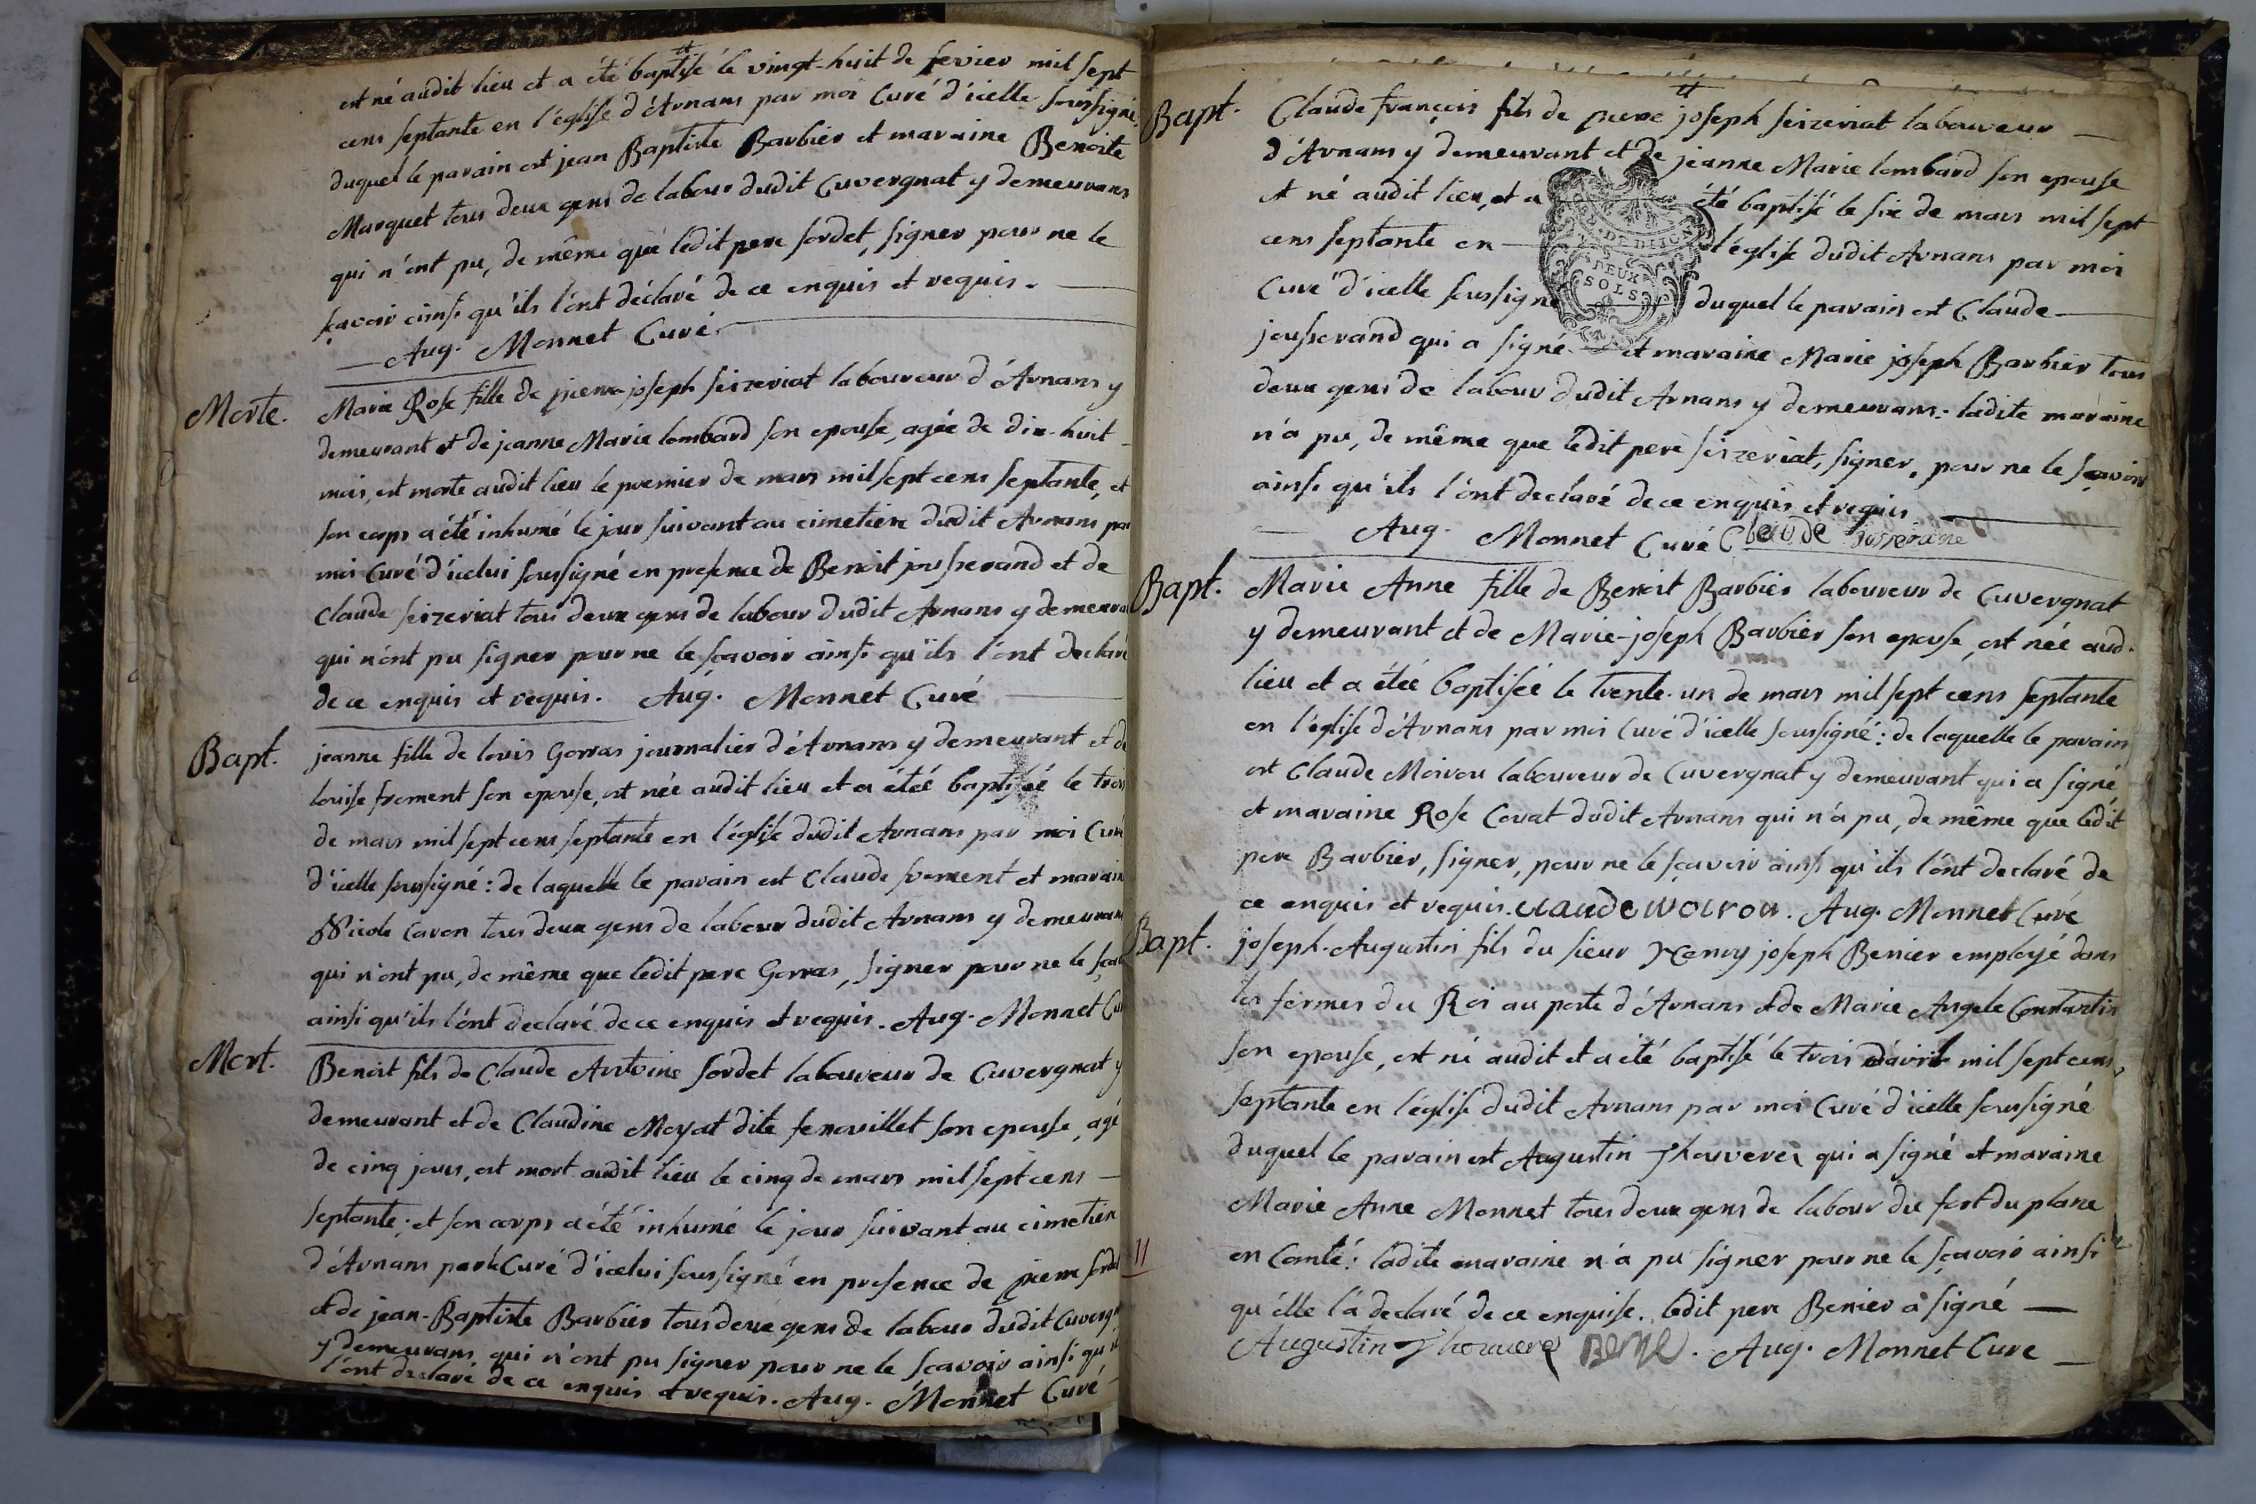 est né audit lieu et a été baptisé le vingt-huit de fevier mil sept
cens septante en l'église d'Arnans par moi Curé d'icelle soussigné
duquel le parain est jean Baptiste Barbier et maraine Benoite
Marquet tous deux gens de labour dudit Cuvergnat y demeurans
qui n'ont pu, de même que ledit pere sordet, signer pour ne le
sçavoir ainsi qu'ils l'ont déclaré de ce enquis et requis.
Aug. Monnet Curé.
Morte.
Marie Rose fille de pierre joseph seizeriat laboureur d'Arnans y
demeurant et de jeanne Marie lombard son epouse, agée de dix-huit
mois, est morte audit lieu le premier de mars mil sept cens septante, et
son corps a été inhumé le jour suivant au cimetiere dudit Arnans par
moi Curé d'icelui soussigné en presence de Benoit jousserand et de
Claude seizeriat tous deux gens de labour dudit Arnans y demeura
qui n'ont pu signer pour ne le sçavoir ainsi qu'ils l'ont declaré
de ce enquis et requis. Aug. Monnet Curé
Bapt.
jeanne fille de louis Gorras journalier d'Arnans y demeurant et de
louise froment son epouse, est née audit lieu et a étée baptisée le trois
de mars mil sept cens septante en l'église dudit Arnans par moi Curé
d'icelle soussigné: de laquelle le parain est Claude froment et marain
Nicole Caron tous deux gens de labour dudit Arnans y demeurans
qui n'ont pu, de même que ledit pere Gorras, signer pour ne le sçav
ainsi qu'ils l'ont declaré de ce enquis et requis. Aug. Monnet Cu
Mort.
Benoit fils de Claude Antoine sordet laboureur de Cuvergnat y
demeurant et de Claudine Moyat dite fenouillet son epouse, agé
de cinq jours, est mort audit lieu le cinq de mars mil sept cens
septante; et son corps a été inhumé le jour suivant au cimetier
d'Arnans par le Curé d'icelui soussigné en presence de pierre sordet
et de jean-Baptiste Barbier tous deux gens de labour dudit Cuvergn
y demeurans qui n'ont pu signer pour ne le sçavoir ainsi qu'il
l'ont declaré de ce enquis et requis. Aug. Monnet Curé
Bapt.
Claude françois fils de pierre joseph seizeriat laboureur
d'Arnans y demeurant et de jeanne Marie lombard son epouse
et né audit lieu, et a été baptisé le six de mars mil sept
cens septante en l'église dudit Arnans par moi
DEUX
SOLS
Curé d'icelle soussigné duquel le parain est Claude
jousserand qui a signé et maraine Marie joseph Barbier tous
deux gens de labour dudit Arnans y demeurans: ladite maraine
n'a pu, de même que ledit pere seizeriat, signer, pour ne le sçavoir
ainsi qu'ils l'ont declaré de ce enquis et requis
Aug. Monnet Curé Claude
Bapt.
Marie Anne fille de Benoit Barbier laboureur de Cuvergnat
y demeurant et de Marie-joseph Barbier son epouse, est née aud.
lieu et a étée baptisée le trente-un de mars mil sept cens septante
en l'église d'Arnans par moi Curé d'icelle soussigné: de laquelle le parain
est Claude Moirou laboureur de Cuvergnat y demeurant qui a signé
et maraine Rose Corat dudit Arnans qui n'a pu, de même que ledit
pere Barbier, signer, pour ne le sçavoir ainsi qu'ils l'ont declaré de
ce enquis et requis. claude moirou. Aug. Monnet Curé
Bapt.
joseph-Augustin fils du sieur Henry joseph Benier employé dans
les fermes du Roi au poste d'Arnans et de Marie Angele Constantin
son epouse, est né audit et a été baptisé le trois d'avril mil sept cens
septante en l'église dudit Arnans par moi Curé d'icelle soussigné
duquel le parain est Augustin qui a signé et maraine
Marie Anne Monnet tous deux gens de labour du fort du plane
en Comté: ladite maraine n'a pu signer pour ne le sçavoir ainsi
11
qu'elle l'a declaré de ce enquise. ledit pere Benier a signé
Augustin Aug. Monnet Cure